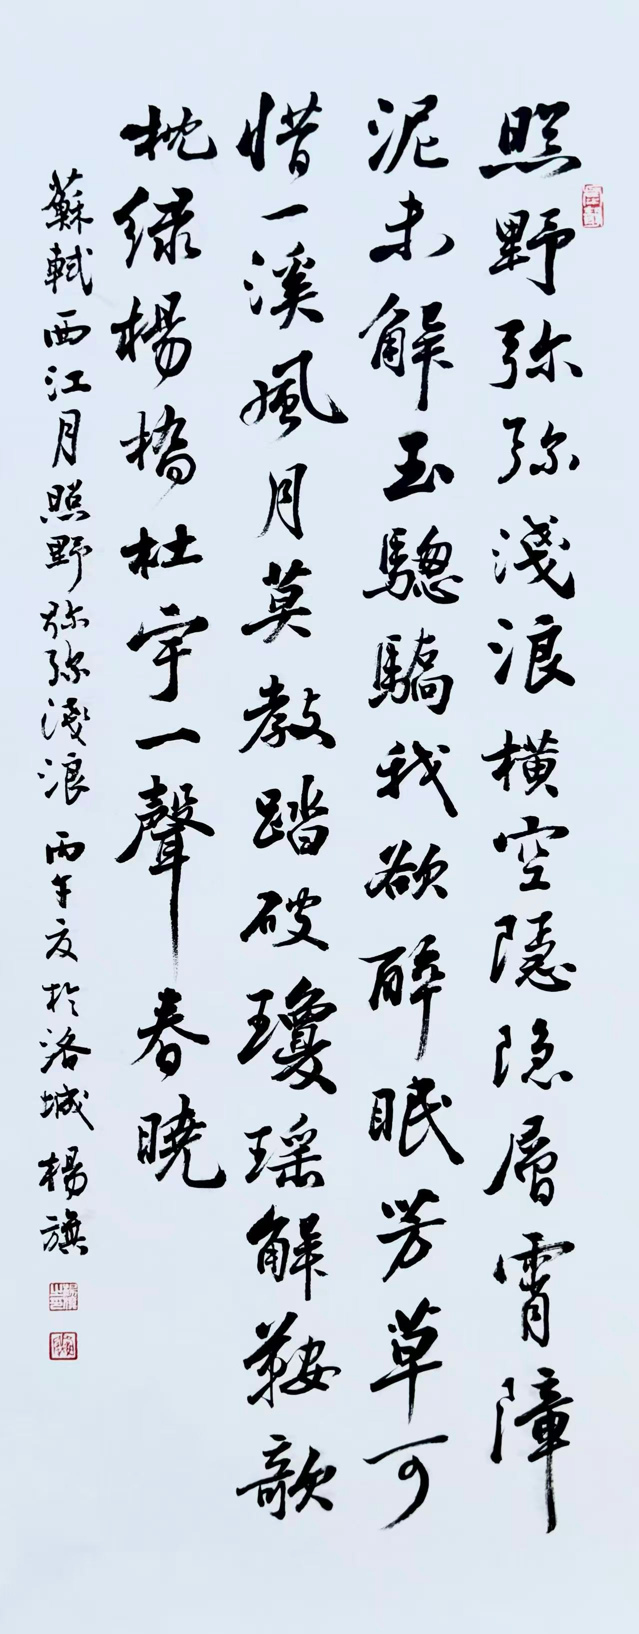 照野弥弥淺浪橫空隱隐層霄障
泥未解玉驄驕我欲醉眠芳草可
惜一溪風月莫教踏破瓊瑶解鞍欹
枕绿楊橋杜宇一聲春曉
蘇軾西江月照野弥弥淺浪 丙午夏於洛城 楊旗